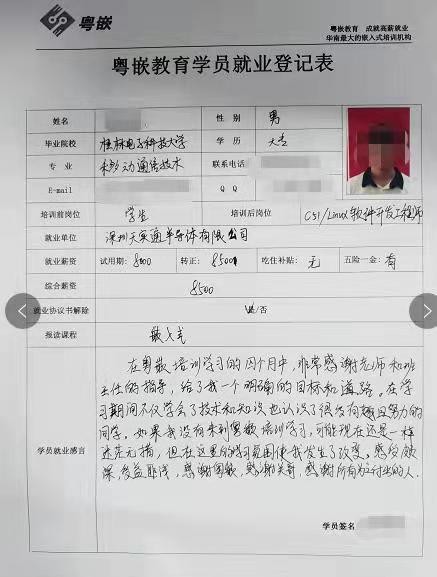 粤嵌
粤嵌教育 成就高薪就业
华南最大的嵌入式培训机构
粤嵌教育学员就业登记表
姓名 性别 男
毕业院校 桂林电子科技大学 学历 大专
专业 移动通信技术 联系电话
E-mail Q Q
培训前岗位 学生 培训后岗位 C51/Linux软件开发工程师
就业单位 深圳天 通半导体有限公司
就业薪资 试用期: 8000 转正: 8500 吃住补贴: 无 五险一金: 有
综合薪资 8500
就业协议书解除 是/否
报读课程 嵌入式
在粤嵌培训学习的四个月中,非常感谢老师和班
主任的指导,给了我一个明确的目标和道路。在学
习期间不仅学会了技术和知识也认识了很多有趣且努力的
同学。如果我没有来到粤嵌培训学习,可能现在还是一样
迷茫无措,但在这里的学习氛围使我发生了改变,感受颇
深,受益匪浅,感谢粤嵌,感谢 ,感谢所有为之付出的人.
学员就业感言
学员签名